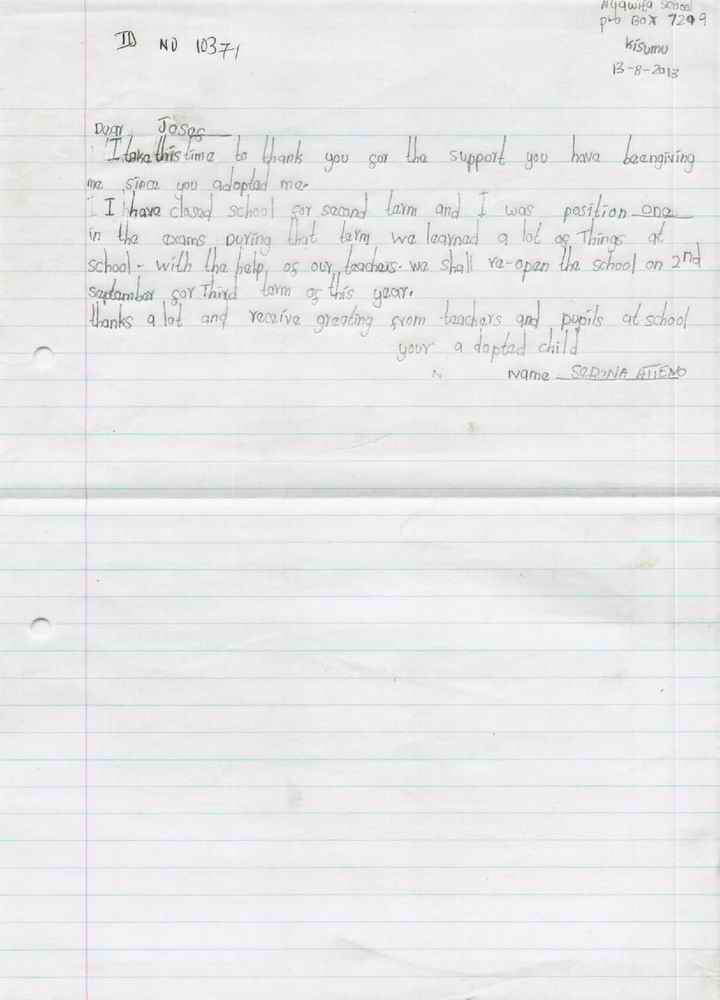 Nyawita School
p.o Box 7299
ID NO 10371
Kisumu
13-8-2013
Dear Joses
I take this time to thank you for the support you have beengiving
me since you adopted me.
I I have closed school for second term and I was position one
in the exams During that term we learned a lot of Things at
school - with the help, of our teachers. we shall re-open the school on 2nd
september for Third term of this year.
thanks a lot and receive greating from teachers and pupils at school
your a dopted child
N
Name ATIENO